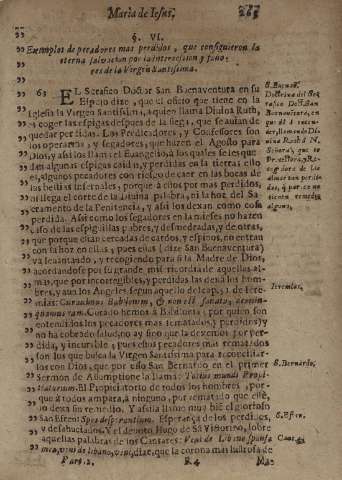 Maria de Iesus. 
§. VI.
Exemplos de pecadores mas perdidos, que consiguieron la
eterna salvacion por la intercession y fauo-
res de la Virgen Santissima.
63 EL Serafico Doctor San Buenaventura en su
Espejo dize, que el oficio que tiene en la
Iglesia la Virgen Santissima, aquien llama Diuina Ruth,
a coger las espigas despues de la siega, que se auian de
quedar perdidas. Los Predicadores, y Confessores son
los operarios, y segadores, que hazen el Agosto para
Dios, y assi los llamò el Euangelio, à los quales se les que
dan algunas espigas caidas, y perdidas en la tierra, esto
es, algunos pecadores con riesgo de caer en las bocas de
las bestias infernales, porque à ellos por mas perdidos,
ni llega el corte de la Diuina palabra, ni la hoz del Sa-
cramento de la Penitencia, y assi los dexan como cosa
perdida. Assi como los segadores en las mieses no hazen
caso de las espiguillas pobres, y desmedradas, y de otras,
que porque estan cercadas de cardos, y espinos, no entran
con la hoz en ellas, pues estas (dize San Buenaventura)
va leuantando, y recogiendo para si la Madre de Dios,
acordandose por su grande misericordia de aquellas al-
mas, que por incorregibles, y perdidas las dexan los hom-
bres, y aun los Angeles segun aquello del cap. 51. de Iere-
mias: Curauimus Babylonem, & non est sanata,
Curado hemos à Babilonia; por quien son
entendidos los pecadores mas rematados, y perdidos, y
no ha cobrado salud, no ay sino que la dexemos por per-
dida, y incurable, pues estos pecadores mas rematados
son los que busca la Virgen Santissima para reconciliar-
los con Dios, que por esso San Bernardo en el primer
Sermon de Assumptione la llama: Totius mundi Propi-
tiatorium. El Propiciatorio de todos los hombres, por-
que à todos ampara, à ninguno, por rematado que estè,
lo dexa sin remedio. Y assi la llamo muy bien el glorioso
San Efren: Spes desperantium. Esperança de los perdidos,
y desahuciados. Y el deuoto Hugo de S. Victorino, sobre
aquellas palabras de los Cantares: Veni de Libano sponsa
mea, veni de libano, veni, dize, que la corona mas lustrosa de
Part. 2. R. 4 Ma-
S. Buenav.
Doctrina del Se-
rafico Doct. San
Buenauentura, en
Ieremias.
S. Bernardo.
S. Efren.
Cant. 4.